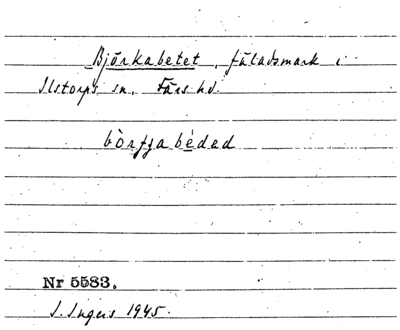 Björkabetet, fäladsmark i
Ilstorps sn. Färs hd.
bòrʃʃabèdad
Nr 5583.
I. Ingers 1945.